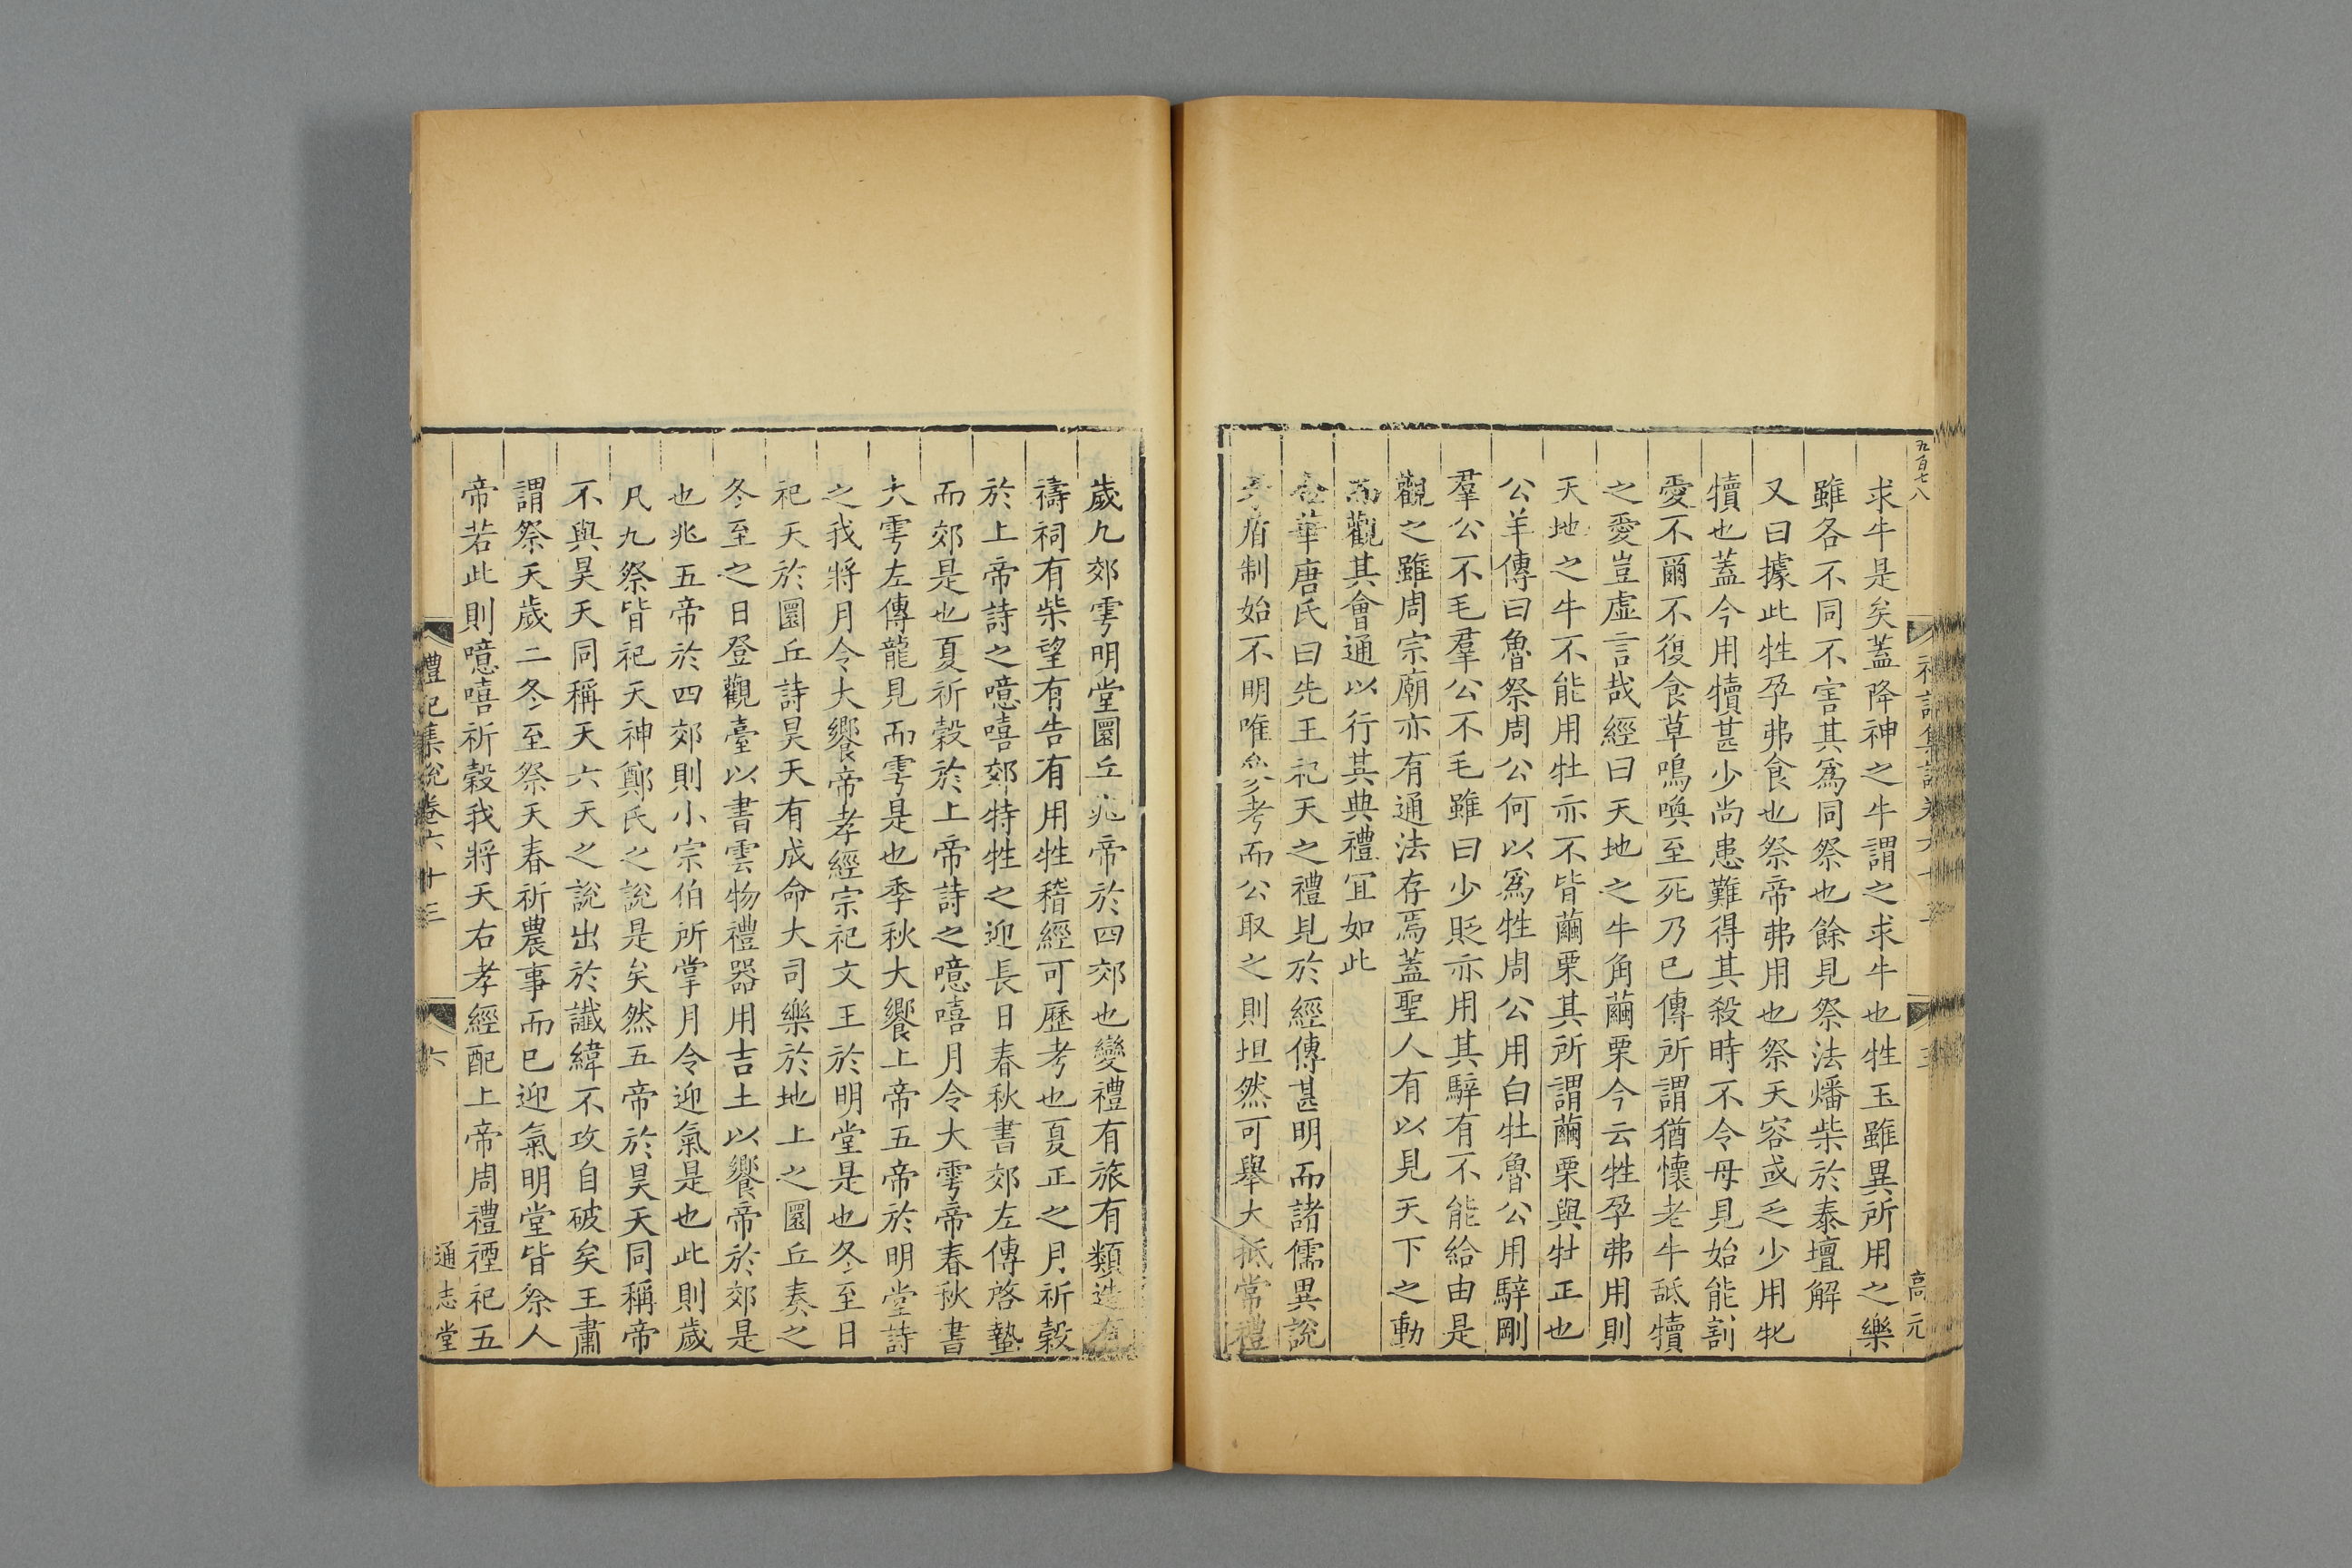 五百七八
求牛是矣蓋降神之牛謂之求牛也牲玉雖異所用之樂
雖各不同不害其爲同祭也餘見祭法燔柴於泰壇解
又曰據此牲孕弗食也祭帝弗用也祭天容或乏少用牝
犢也蓋今用犢甚少尚患難得其殺時不令母見始能割
愛不爾不復食草鳴喚至死乃已傳所謂猶懷老牛舐犢
之愛豈虛言哉經曰天地之牛角繭栗今云牲孕弗用則
天地之牛不能用牡亦不皆繭栗其所謂繭栗與牡正也
公羊傳曰魯祭周公何以爲牲周公用白牡魯公用騂剛
羣公不毛羣公不毛雖曰少貶亦用其騂有不能給由是
觀之雖周宗廟亦有通法存焉蓋聖人有以見天下之動
而觀其會通以行其典禮冝如此
華唐氏曰先王祀天之禮見於經傳甚明而諸儒異說
制始不明唯參考而公取之則坦然可舉大抵常禮
高元
歲九郊雩明堂圜丘兆帝於四郊也變禮有旅有類造有
禱祠有柴望有告有用牲稽經可歷考也夏正之月祈穀
於上帝詩之噫嘻郊特牲之迎長日春秋書郊左傳啓蟄
而郊是也夏祈穀於上帝詩之噫嘻月令大雩帝春秋書
大雩左傳龍見而雩是也季秋大饗上帝五帝於明堂詩
之我將月令大饗帝孝經宗祀文王於明堂是也冬至日
祀天於圜丘詩昊天有成命大司樂於地上之圜丘奏之
冬至之日登觀臺以書雲物禮器用吉土以饗帝於郊是
也兆五帝於四郊則小宗伯所掌月令迎氣是也此則歲
凡九祭皆祀天神鄭氏之說是矣然五帝於昊天同稱帝
不與昊天同稱天六天之說出於讖緯不攻自破矣王肅
謂祭天歲二冬至祭天春祈農事而已迎氣明堂皆祭人
帝若此則噫嘻祈穀我將天右孝經配上帝周禮禋祀五
禮記集說卷六十三
六
通志堂